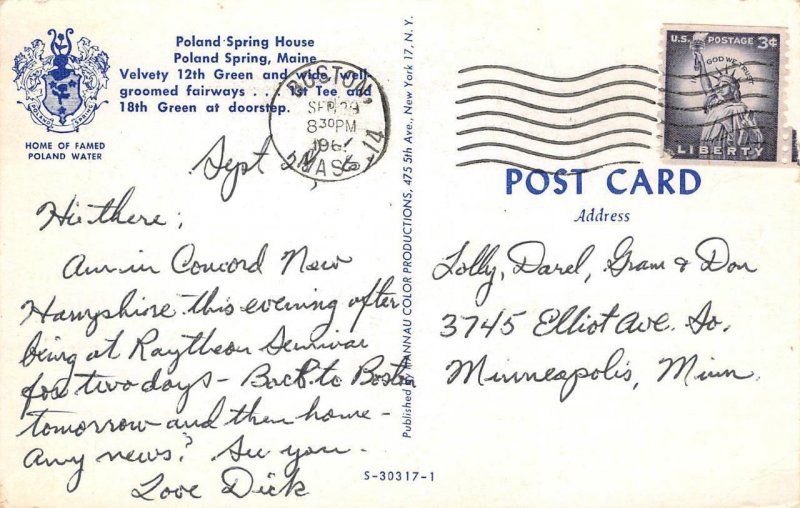 Poland Spring House
Poland Spring, Maine
Velvety 12th Green and wide, well-
groomed fairways . . . 1st Tee and
18th Green at doorstep.
HOME OF FAMED
POLAND WATER
BOSTON,
SEP 29
8 30 PM
196
MASS.
14
U.S. POSTAGE 3¢
IN GOD WE TRUST
LIBERTY
POST CARD
Address
Sept
Hi there,
Am in Concord New
Hampshire this evening after
being at Raytheon Seminar
for two days - Back to Boston
tomorrow and then home -
Any news? See you.
Love Dick
Lolly, Darel, Gram & Don
3745 Elliot Ave. So.
Minneapolis, Minn.
Published by MANNAU COLOR PRODUCTIONS, 475 5th Ave., New York 17, N. Y.
S-30317-1